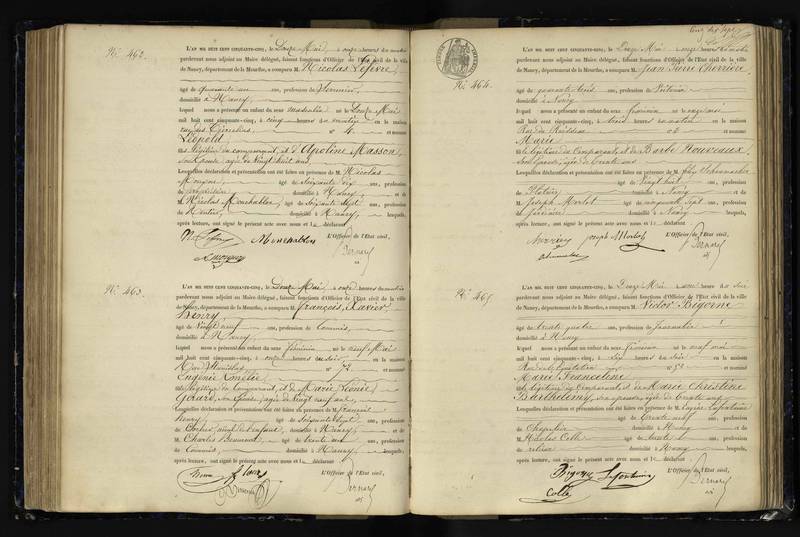 No. 462.
L'AN MIL HUIT CENT CINQUANTE-CINQ, le Douze Mai, à onze heures du matin
pardevant nous adjoint au Maire délégué, faisant fonctions d'Officier de l'Etat civil de la ville
de Nancy, département de la Meurthe, a comparu M. Nicolas Lefèvre,
âgé de quarante un ans, profession de
domicilié à Nancy,
lequel nous a présenté un enfant du sexe masculin né le Douze Mai
mil huit cent cinquante-cinq, à cinq heures du matin en la maison
rue des n° 4. et nommé
Léopold
fils légitime du comparant, et d'Apoline Masson,
son épouse, âgée de vingt huit ans,
Lesquelles déclaration et présentation ont été faites en présence de M. Nicolas
Mougin, âgé de soixante dix ans, profession
de propriétaire domicilié à Nancy, et de
M. Nicolas Monchablon, âgé de soixante sept ans, profession
de Rentier, domicilié à Nancy, lesquels,
après lecture, ont signé le présent acte avec nous et le déclarant
L'Officier de l'Etat civil,
Monchablon
Bernard
No. 463.
L'AN MIL HUIT CENT CINQUANTE-CINQ, le Douze Mai, à onze heures du matin
pardevant nous adjoint au Maire délégué, faisant fonctions d'Officier de l'Etat civil de la ville
de Nancy, département de la Meurthe, a comparu M. François Xavier
Henry
âgé de Vingt neuf ans, profession de Commis,
domicilié à Nancy,
lequel nous a présenté un enfant du sexe féminin né le neuf Mai
mil huit cent cinquante-cinq, à onze heures du soir, en la maison
Rue Stanislas, n° 72 et nommé
Eugénie Amélie
fille légitime du Comparant, et de Marie Léonie
Gérard, son épouse, âgée de vingt neuf ans,
Lesquelles déclaration et présentation ont été faites en présence de M. François
Henry, âgé de soixante sept ans, profession
de aïeul de l'enfant, domicilié à Nancy, et de
M. Charles âgé de trente ans, profession
de Commis, domicilié à Nancy, lesquels,
après lecture, ont signé le présent acte avec nous et le déclarant
L'Officier de l'Etat civil,
Bernard
No. 464.
L'AN MIL HUIT CENT CINQUANTE-CINQ, le Douze Mai à onze heures du matin
pardevant nous adjoint au Maire délégué, faisant fonctions d'Officier de l'Etat civil de la ville
de Nancy, département de la Meurthe, a comparu M. Jean Pierre
âgé de quarante trois ans, profession de
domicilié à Nancy
lequel nous a présenté un enfant du sexe féminin né le onze mai
mil huit cent cinquante-cinq, à trois heures du matin en la maison
Rue du Ruisseau n° 2 et nommé
Marie
fille légitime du Comparant, et de Barbe Houveaux,
son épouse, âgée de trente ans
Lesquelles déclaration et présentation ont été faites en présence de M.
âgé de vingt huit ans, profession
de domicilié à Nancy et de
M. Joseph Morlot âgé de cinquante sept ans, profession
de domicilié à Nancy lesquels,
après lecture, ont signé le présent acte avec nous et le déclarant
L'Officier de l'Etat civil,
Joseph Morlot
Bernard
No. 465
L'AN MIL HUIT CENT CINQUANTE-CINQ, le Douze Mai à une heure du soir
pardevant nous adjoint au Maire délégué, faisant fonctions d'Officier de l'Etat civil de la ville
de Nancy, département de la Meurthe, a comparu M. Victor Bigorne
âgé de trente quatre ans, profession de journalier
domicilié à Nancy
lequel nous a présenté un enfant du sexe féminin né le neuf mai
mil huit cent cinquante-cinq, à six heures du soir en la maison
Rue de n° 52 et nommé
Marie Franceline
fille légitime du Comparant, et de Marie Christine
Barthélemy, son épouse, âgée de trente ans
Lesquelles déclaration et présentation ont été faites en présence de M. Lafontaine
âgé de trente neuf ans, profession
de Charpentier domicilié à Nancy et de
M. Nicolas Collé âgé de ans, profession
de domicilié à Nancy lesquels,
après lecture, ont signé le présent acte avec nous et le déclarant
L'Officier de l'Etat civil,
Bigorne Lafontaine
Collé
Bernard